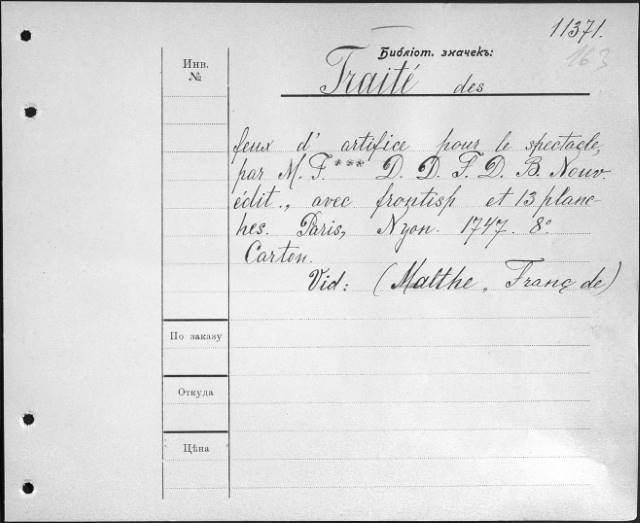 11371.
163
Библіот. значекъ:
Инв.
№
Traité des
feux d' artifice pour le spectacle,
par M. F.*** D. D. F. D. B. Nouv.
édit., avec frontisp et 13 planc-
hes. Paris, Nyon. 1747. 8°
Carton.
Vid: (Malthe, Franç de)
По заказу
Откуда
Цѣна